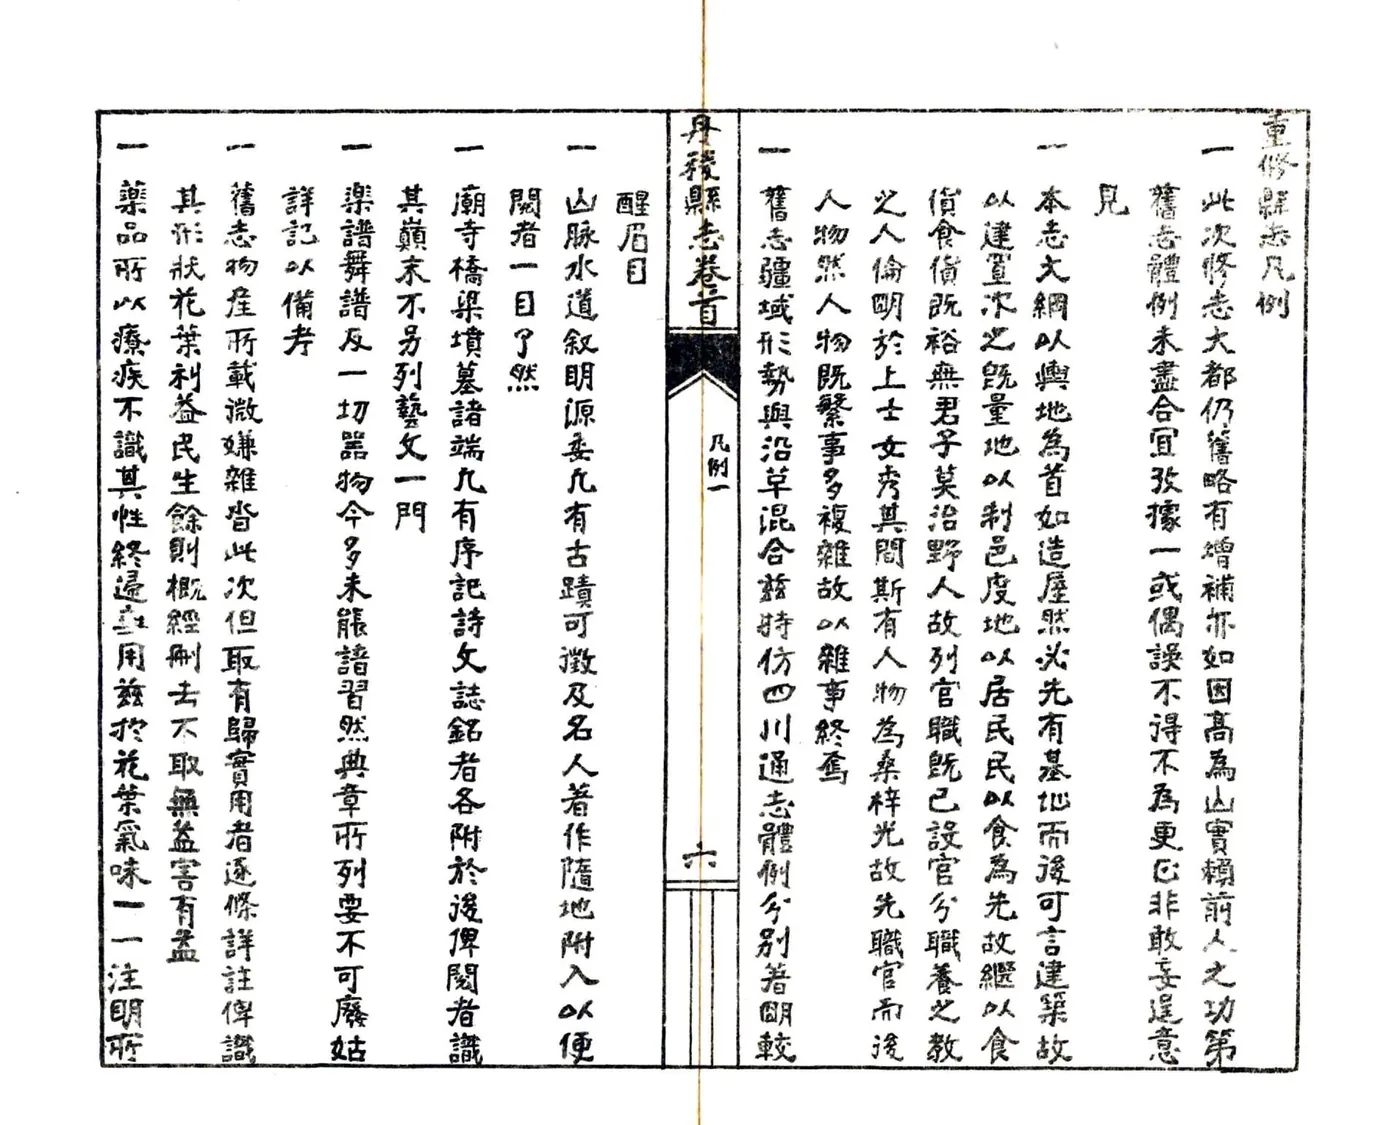 重修縣志凡例
一 此次修志大都仍舊略有增補亦如因高為山實賴前人之功第
舊志體例未盡合宜攷據一或偶誤不得不為更正非敢妄逞意
見
一 本志大綱以輿地為首如造屋然必先有基地而後可言建築故
以建置次之既量地以制邑度地以居民民以食為先故繼以食
貨食貨既裕無君子莫治野人故列官職既已設官分職養之教
之人倫明於上士女秀其間斯有人物為桑梓光故先職官而後
人物然人物既繁事多複雜故以雜事終焉
一 舊志疆域形勢與沿革混合茲特仿四川通志體例分別著明較
丹稜縣志卷首
凡例一
六
醒眉目
一 山脉水道敘明源委凢有古蹟可徵及名人著作隨地附入以便
閱者一目了然
一 廟寺橋梁墳墓諸端凢有序記詩文誌銘者各附於後俾閱者識
其巔末不另列藝文一門
一 楽譜舞譜及一切器物今多未能諳習然典章所列要不可廢姑
詳記以備考
一 舊志物產所載微嫌雜沓此次但取有歸實用者逐條詳註俾識
其形狀花葉利益民生餘則概經刪去不取無益害有益
一 藥品所以療疾不識其性終還無用茲於花葉氣味一一注明所